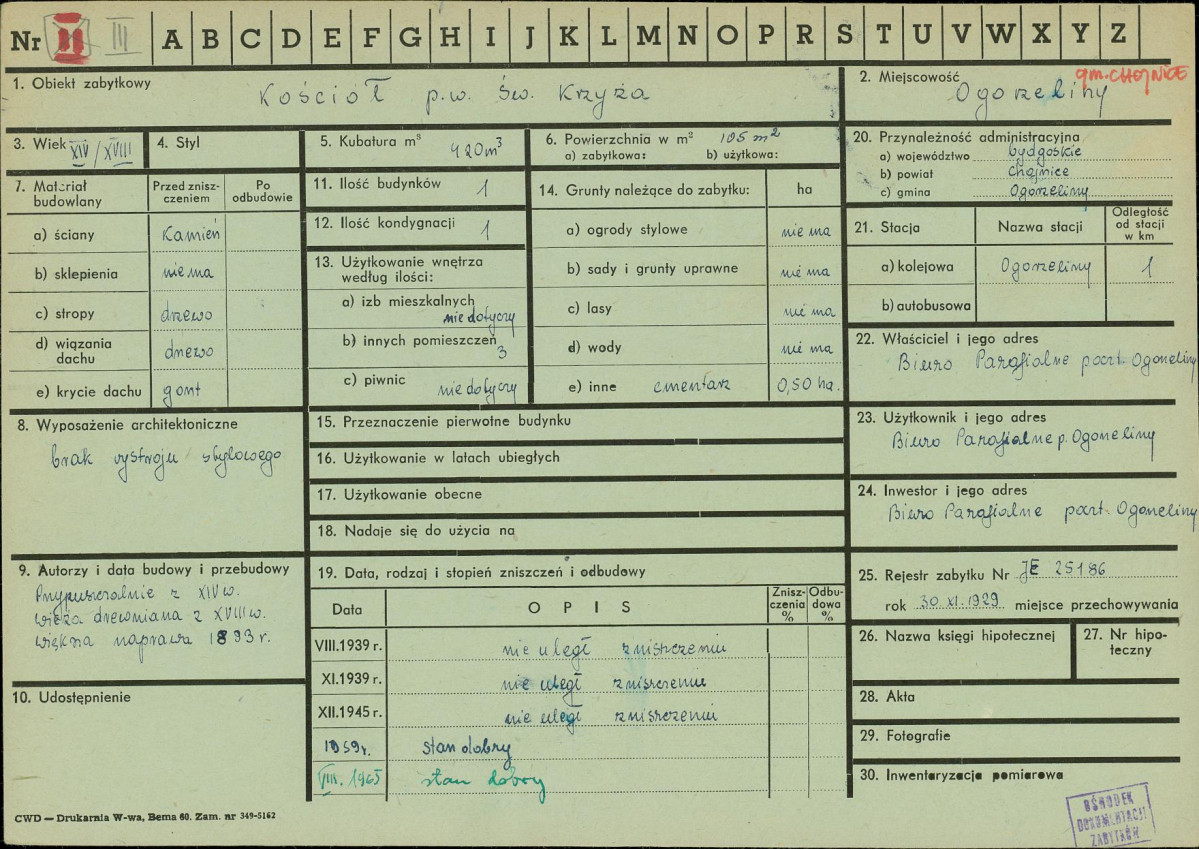 Nr II III A B C D E F G H I J K L M N O P R S T U V W X Y Z
1. Obiekt zabytkowy
Kościół p.w. Św. Krzyża
2. Miejscowość
gm. CHOJNICE
Ogorzeliny
3. Wiek XIV/XVIII
4. Styl
5. Kubatura m³ 420 m³
6. Powierzchnia w m² 105 m²
a) zabytkowa: b) użytkowa:
20. Przynależność administracyjna
a) województwo bydgoskie
b) powiat Chojnice
c) gmina Ogorzeliny
7. Materiał budowlany
Przed zniszczeniem
Po odbudowie
a) ściany Kamień
b) sklepienia nie ma
c) stropy drzewo
d) wiązania dachu drzewo
e) krycie dachu gont
11. Ilość budynków 1
12. Ilość kondygnacji 1
13. Użytkowanie wnętrza
według ilości:
a) izb mieszkalnych
nie dotyczy
b) innych pomieszczeń
3
c) piwnic nie dotyczy
14. Grunty należące do zabytku: ha
a) ogrody stylowe nie ma
b) sady i grunty uprawne nie ma
c) lasy nie ma
d) wody nie ma
e) inne cmentarz 0,50 ha.
21. Stacja
Nazwa stacji
Odległość
od stacji
w km
a) kolejowa Ogorzeliny 1
b) autobusowa
22. Właściciel i jego adres
Biuro Parafialne Ogorzeliny
23. Użytkownik i jego adres
Biuro Parafialne p. Ogorzeliny
24. Inwestor i jego adres
Biuro Parafialne Ogorzeliny
8. Wyposażenie architektoniczne
brak wystroju stylowego
15. Przeznaczenie pierwotne budynku
16. Użytkowanie w latach ubiegłych
17. Użytkowanie obecne
18. Nadaje się do użycia na
9. Autorzy i data budowy i przebudowy
Przypuszczalnie z XIV w.
wieża drewniana z XVIII w.
większa naprawa 1893 r.
10. Udostępnienie
19. Data, rodzaj i stopień zniszczeń i odbudowy
Data
OPIS
Zniszczenia %
Odbudowa %
VIII.1939 r. nie uległ zniszczeniu
XI.1939 r. nie uległ zniszczeniu
XII.1945 r. nie uległ zniszczeniu
1959r. stan dobry
VIII. 1965 stan dobry
25. Rejestr zabytku Nr JE 25186
rok 30 XI. 1929 miejsce przechowywania
26. Nazwa księgi hipotecznej
27. Nr hipoteczny
28. Akta
29. Fotografie
30. Inwentaryzacja pomiarowa
CWD — Drukarnia W-wa, Bema 60. Zam. nr 349-5162
OŚRODEK
DOKUMENTACJI
ZABYTKÓW